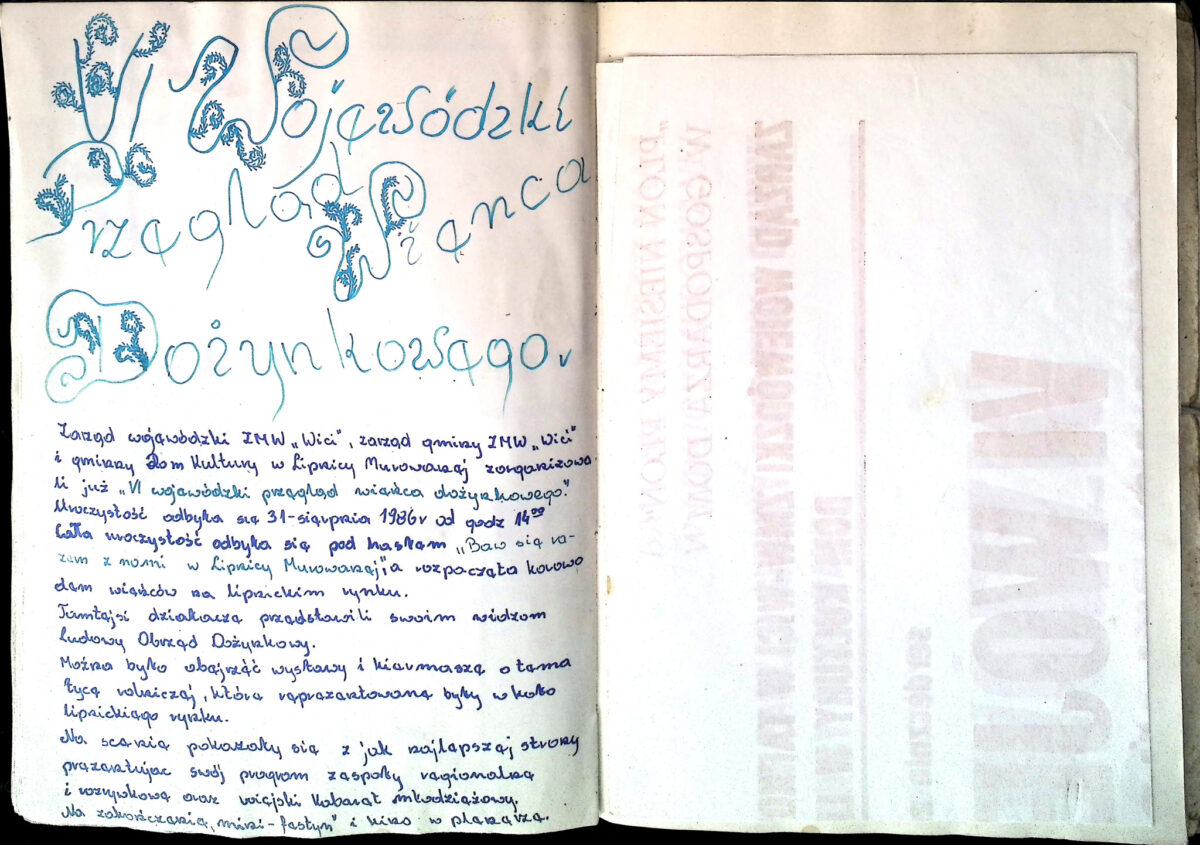 VI Wojewódzki
Przegląd Wieńca
Dożynkowego.
Zarząd wojewódzki ZMW „Wici", zarząd gminy ZMW „Wici"
i gminny Dom Kultury w Lipnicy Murowanej zorganizowa
li już „VI wojewódzki przegląd wieńca dożynkowego."
Uroczystość odbyła się 31-sierpnia 1986r od godz 14⁰⁰
Cała uroczystość odbyła się pod hasłem „Baw się ra-
zem z nami w Lipnicy Murowanej", a rozpoczęta korowo
dem wieńców na lipnickim rynku.
Tamtejsi działacze przedstawili swoim widzom
Ludowy Obrzęd Dożynkowy.
Można było obejrzeć wystawy i kiermasze o tema
tyce rolniczej, które reprezentowane były w koło
lipnickiego rynku.
Na scenie pokazały się z jak najlepszej strony
prezentując swój program zespoły regionalne
i rozrywkowe oraz wiejski kabaret młodzieżowy.
Na zakończenie „mini-festyn" i kino w plenerze.
„PLON NIESIEMY PLON
W GOSPODARZA DOM
ZARZĄD WOJEWÓDZKI ZMW „WICI" W TARNO
DOM KULTURY W
serdecznie